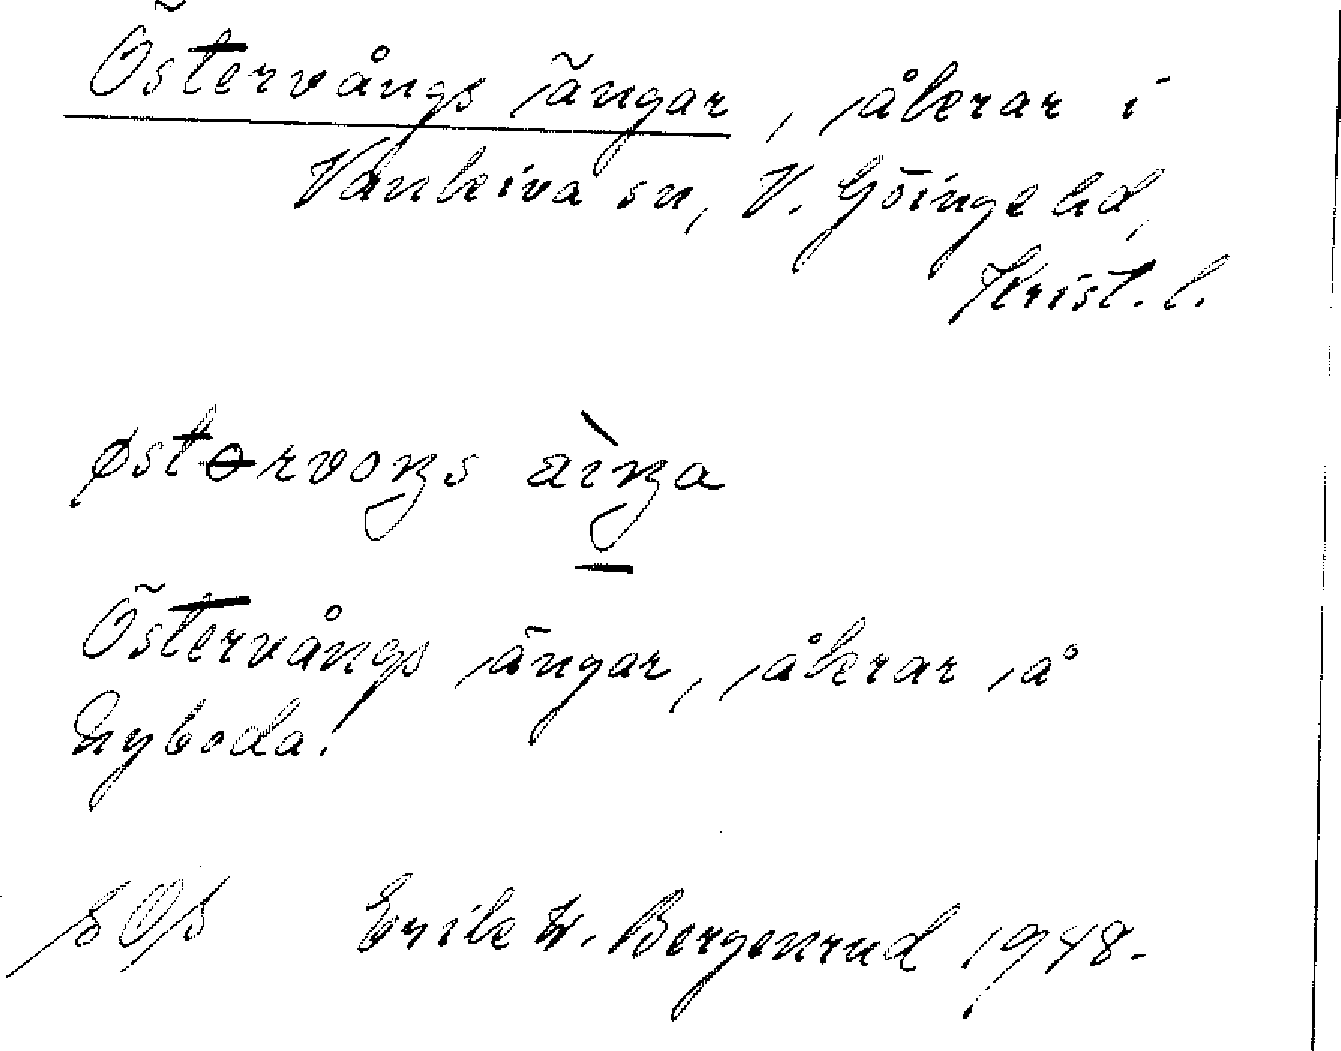 Östervångs ängar, åkrar i
Vankiva sn, V. Göinge hd,
Krist. l.
østərvoŋs àiŋa
Östervångs ängar, åkrar å
Nyboda.
SOS Erik W. Bergenrud 1948.